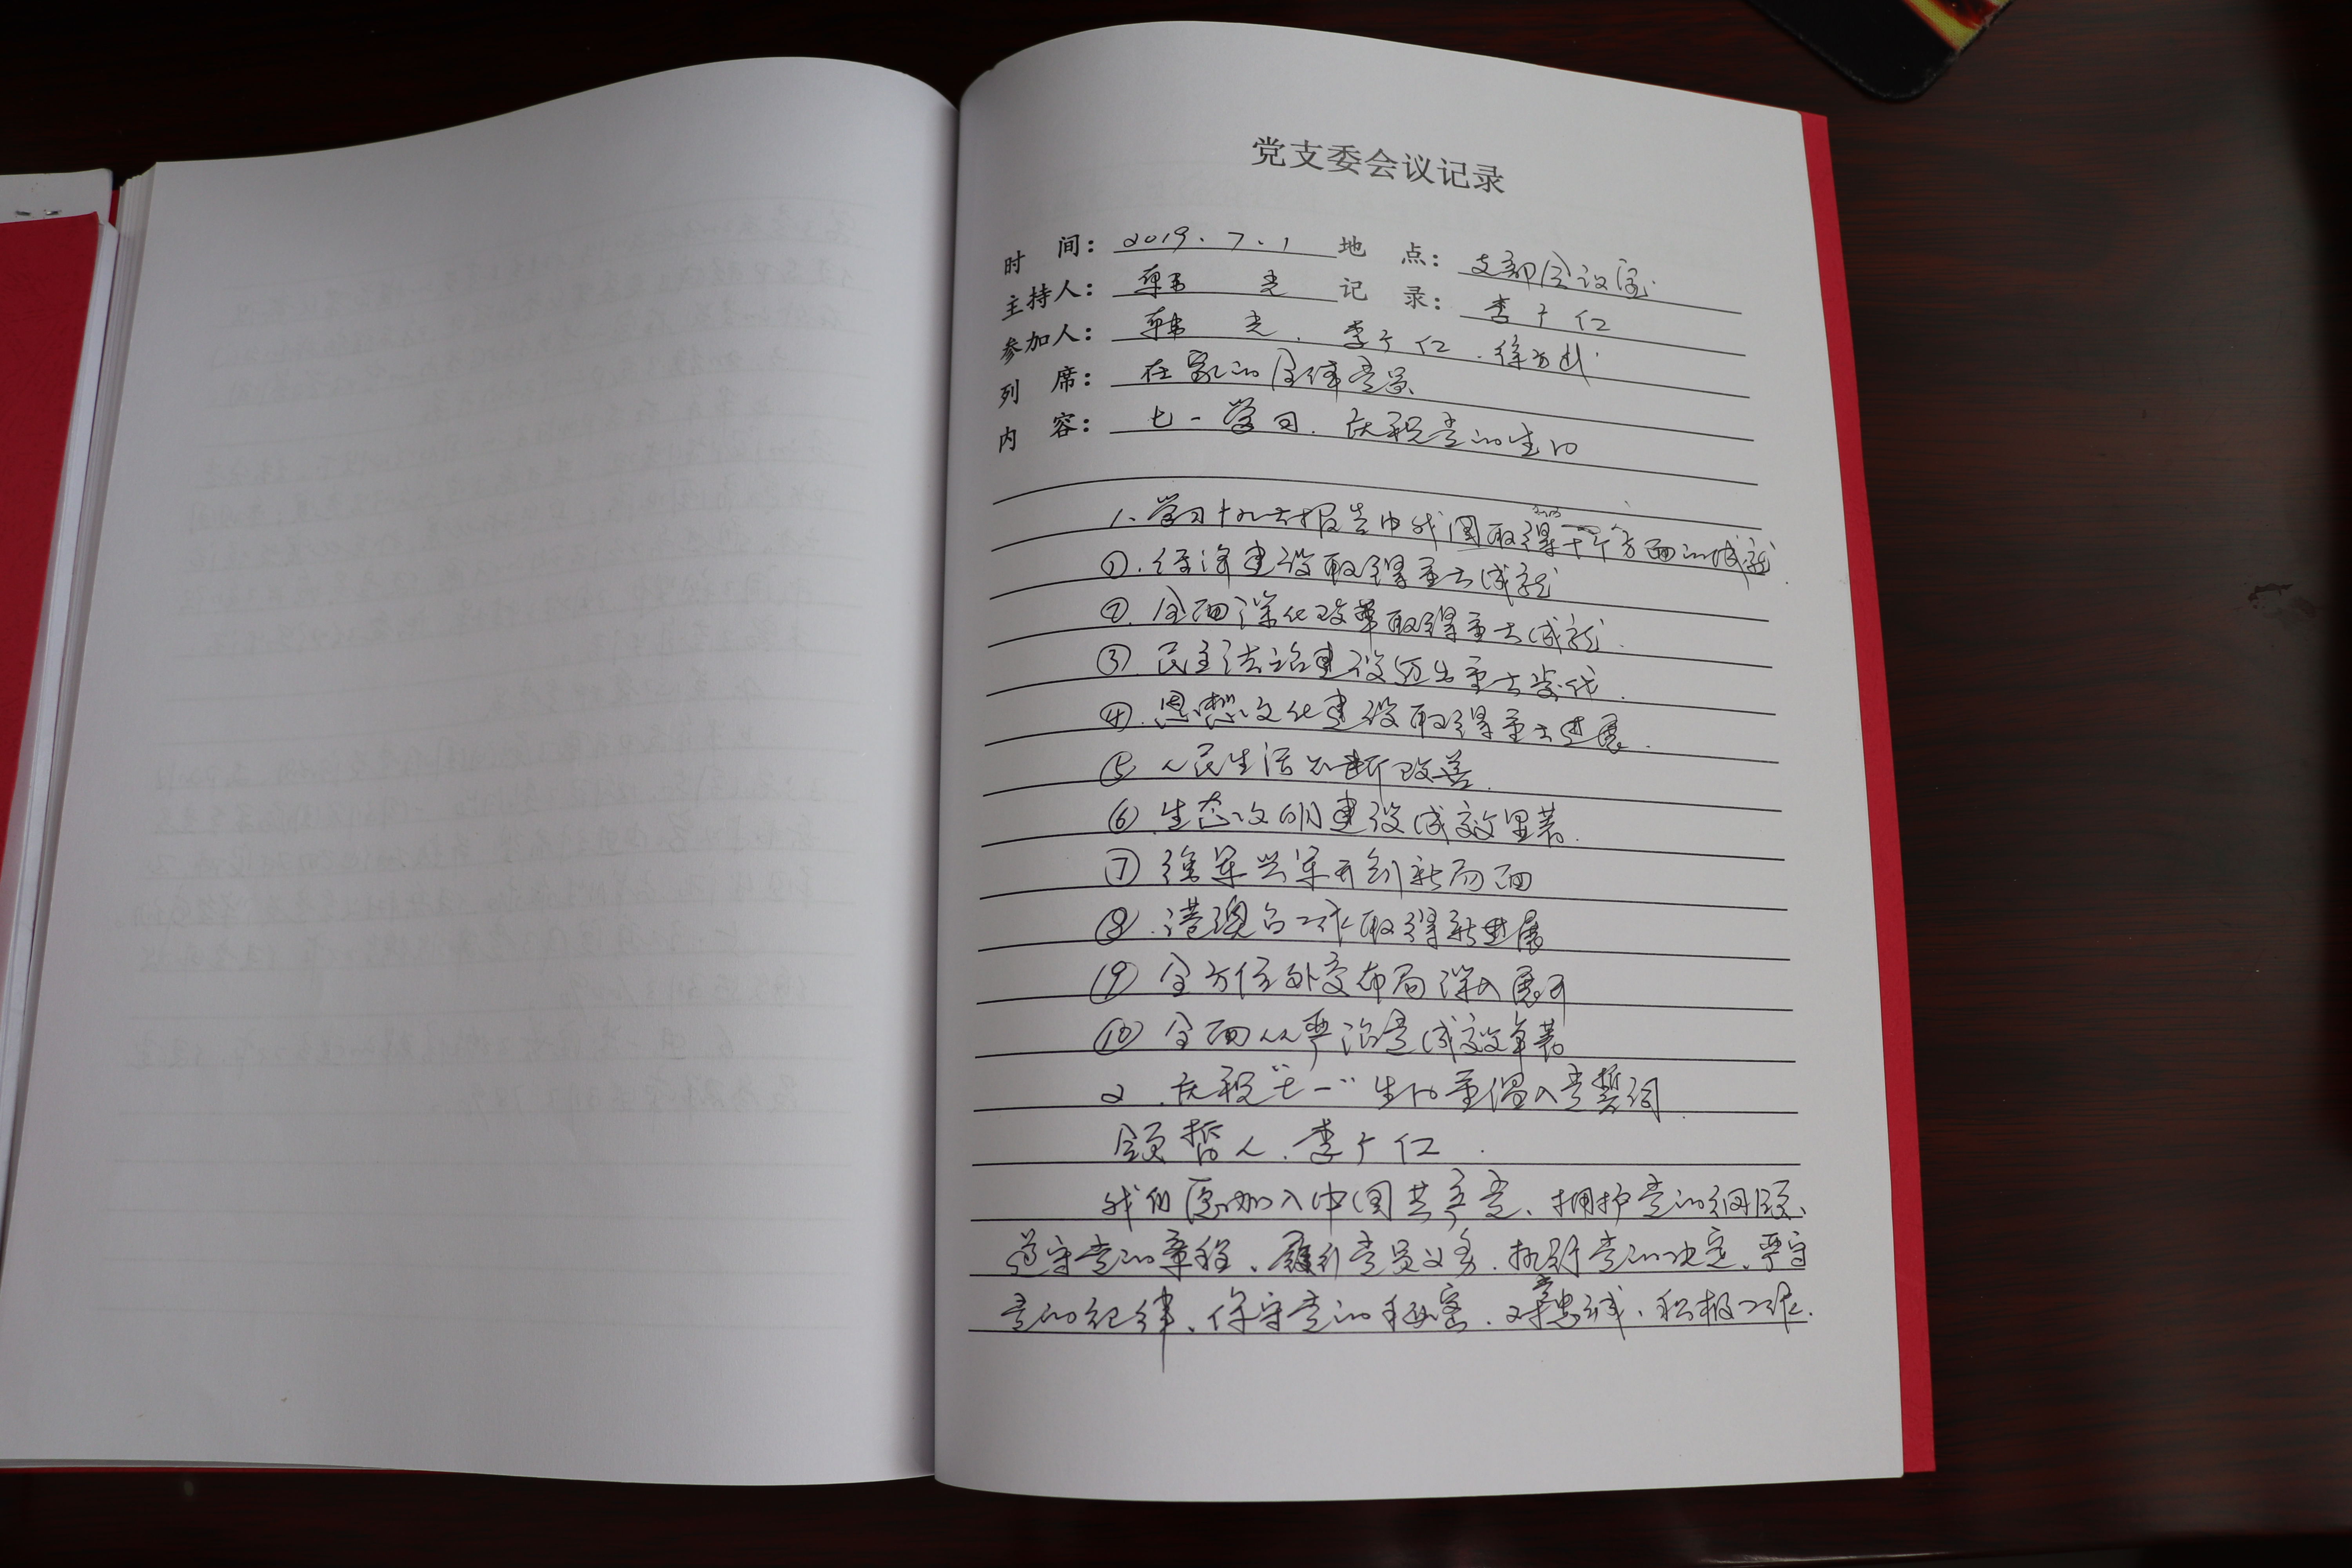 党支委会议记录
时 间: 2019.7.1 地 点: 支部会议室
主持人: 韩 光 记 录: 李广仁
参加人: 韩 光. 李广仁.徐
列 席: 在家的全体党员
内 容: 七一学习.庆祝党的生日
1.学习十九大报告中我国取得的十个方面的成就.
①.经济建设取得重大成就
②.全面深化改革取得重大成就.
③.民主法治建设迈出重大步伐.
④.思想文化建设取得重大进展.
⑤.人民生活不断改善.
⑥.生态文明建设成效显著.
⑦ 强军兴军开创新局面
⑧.港澳台工作取得新进展
⑨ 全方位外交布局深入展开
⑩ 全面从严治党成效卓著
2.庆祝"七一"生日重温入党誓词.
领哲人.李广仁.
我们愿加入中国共产党、拥护党的纲领、
遵守党的章程、履行党员义务.执行党的决定、严守
党的纪律、保守党的秘密.对党忠诚、积极工作.